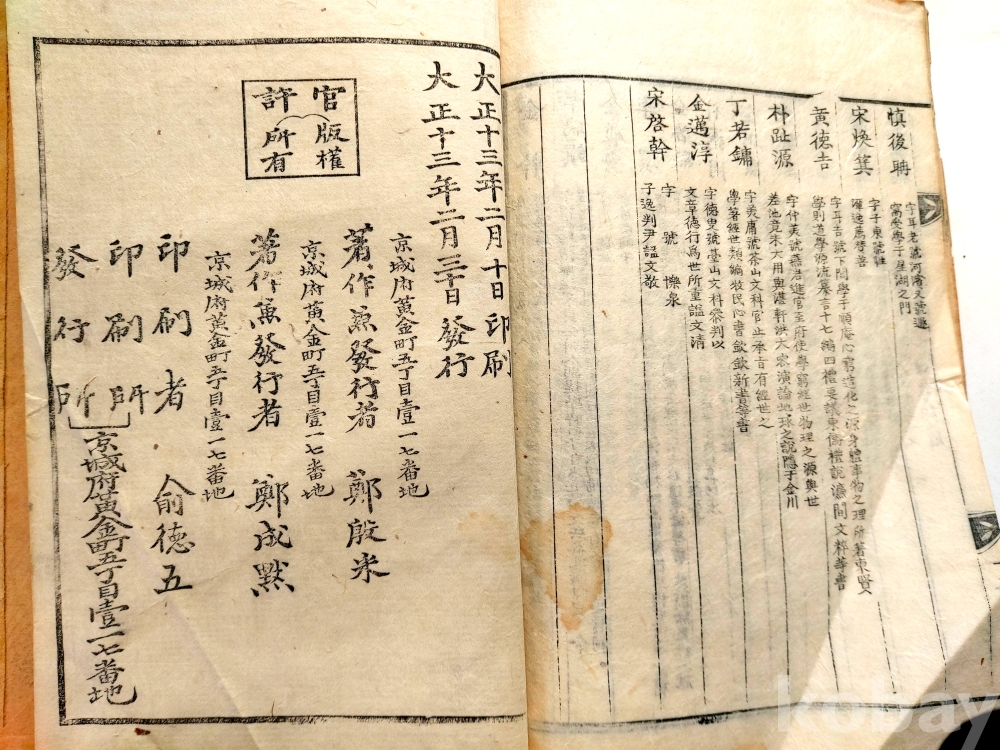 愼後聃
字耳老號河濱又號遯
窩受學于星湖之門
宋煥箕
字子東號性
潭逸爲贊善
黃德吉
字耳吉號下間學于順庵心窮造化之源身體事物之理所著東賢
學則道學源流纂言十七編四禮要議東儒禮說瀛間文粹等書
朴趾源
字仲美號燕岩進官至府使學窮經世物理之源與世
差池竟未大用與湛軒洪大容演論地球之說隱于金川
丁若鏞
字美庸號茶山文科官止承旨有經世之
學著經世類編牧民心書欽欽新書等書
金邁淳
字德叟號臺山文科參判以
文章德行爲世所重諡文淸
宋啓幹
字 號 櫟泉
子逸判尹諡文敬
大正十三年二月十日印刷
大正十三年二月三十日發行
官許
版權所有
京城府黃金町五丁目壹一七番地
著作兼發行者 鄭殷采
京城府黃金町五丁目壹一七番地
著作兼發行者 鄭成默
京城府黃金町五丁目壹一七番地
印刷者 俞德五
印刷所
發行所
京城府黃金町五丁目壹一七番地
kobay